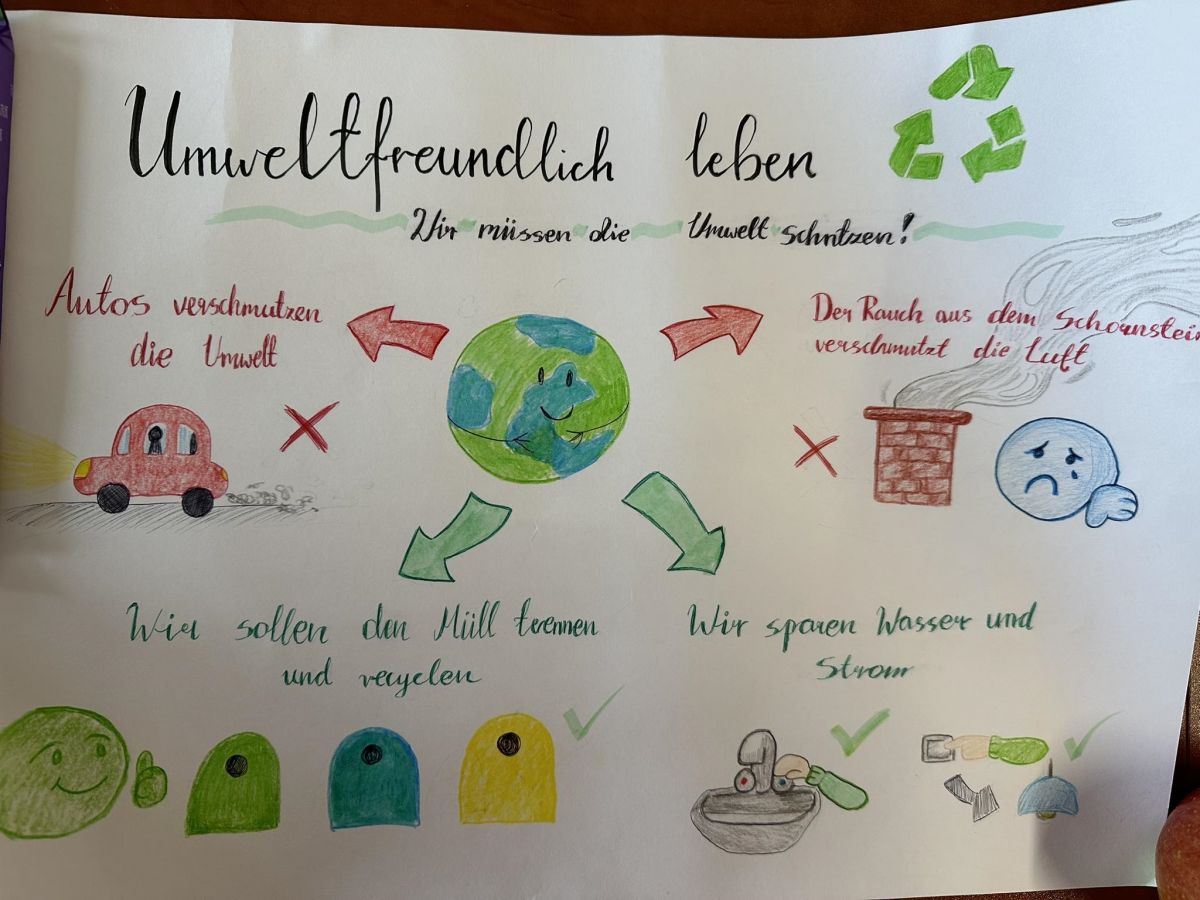 Umweltfreundlich leben
Wir müssen die Umwelt schützen!
Autos verschmutzen
die Umwelt
Der Rauch aus dem Schornstein
verschmutzt die Luft
Wir sollen den Müll trennen
und recyclen
Wir sparen Wasser und
Strom